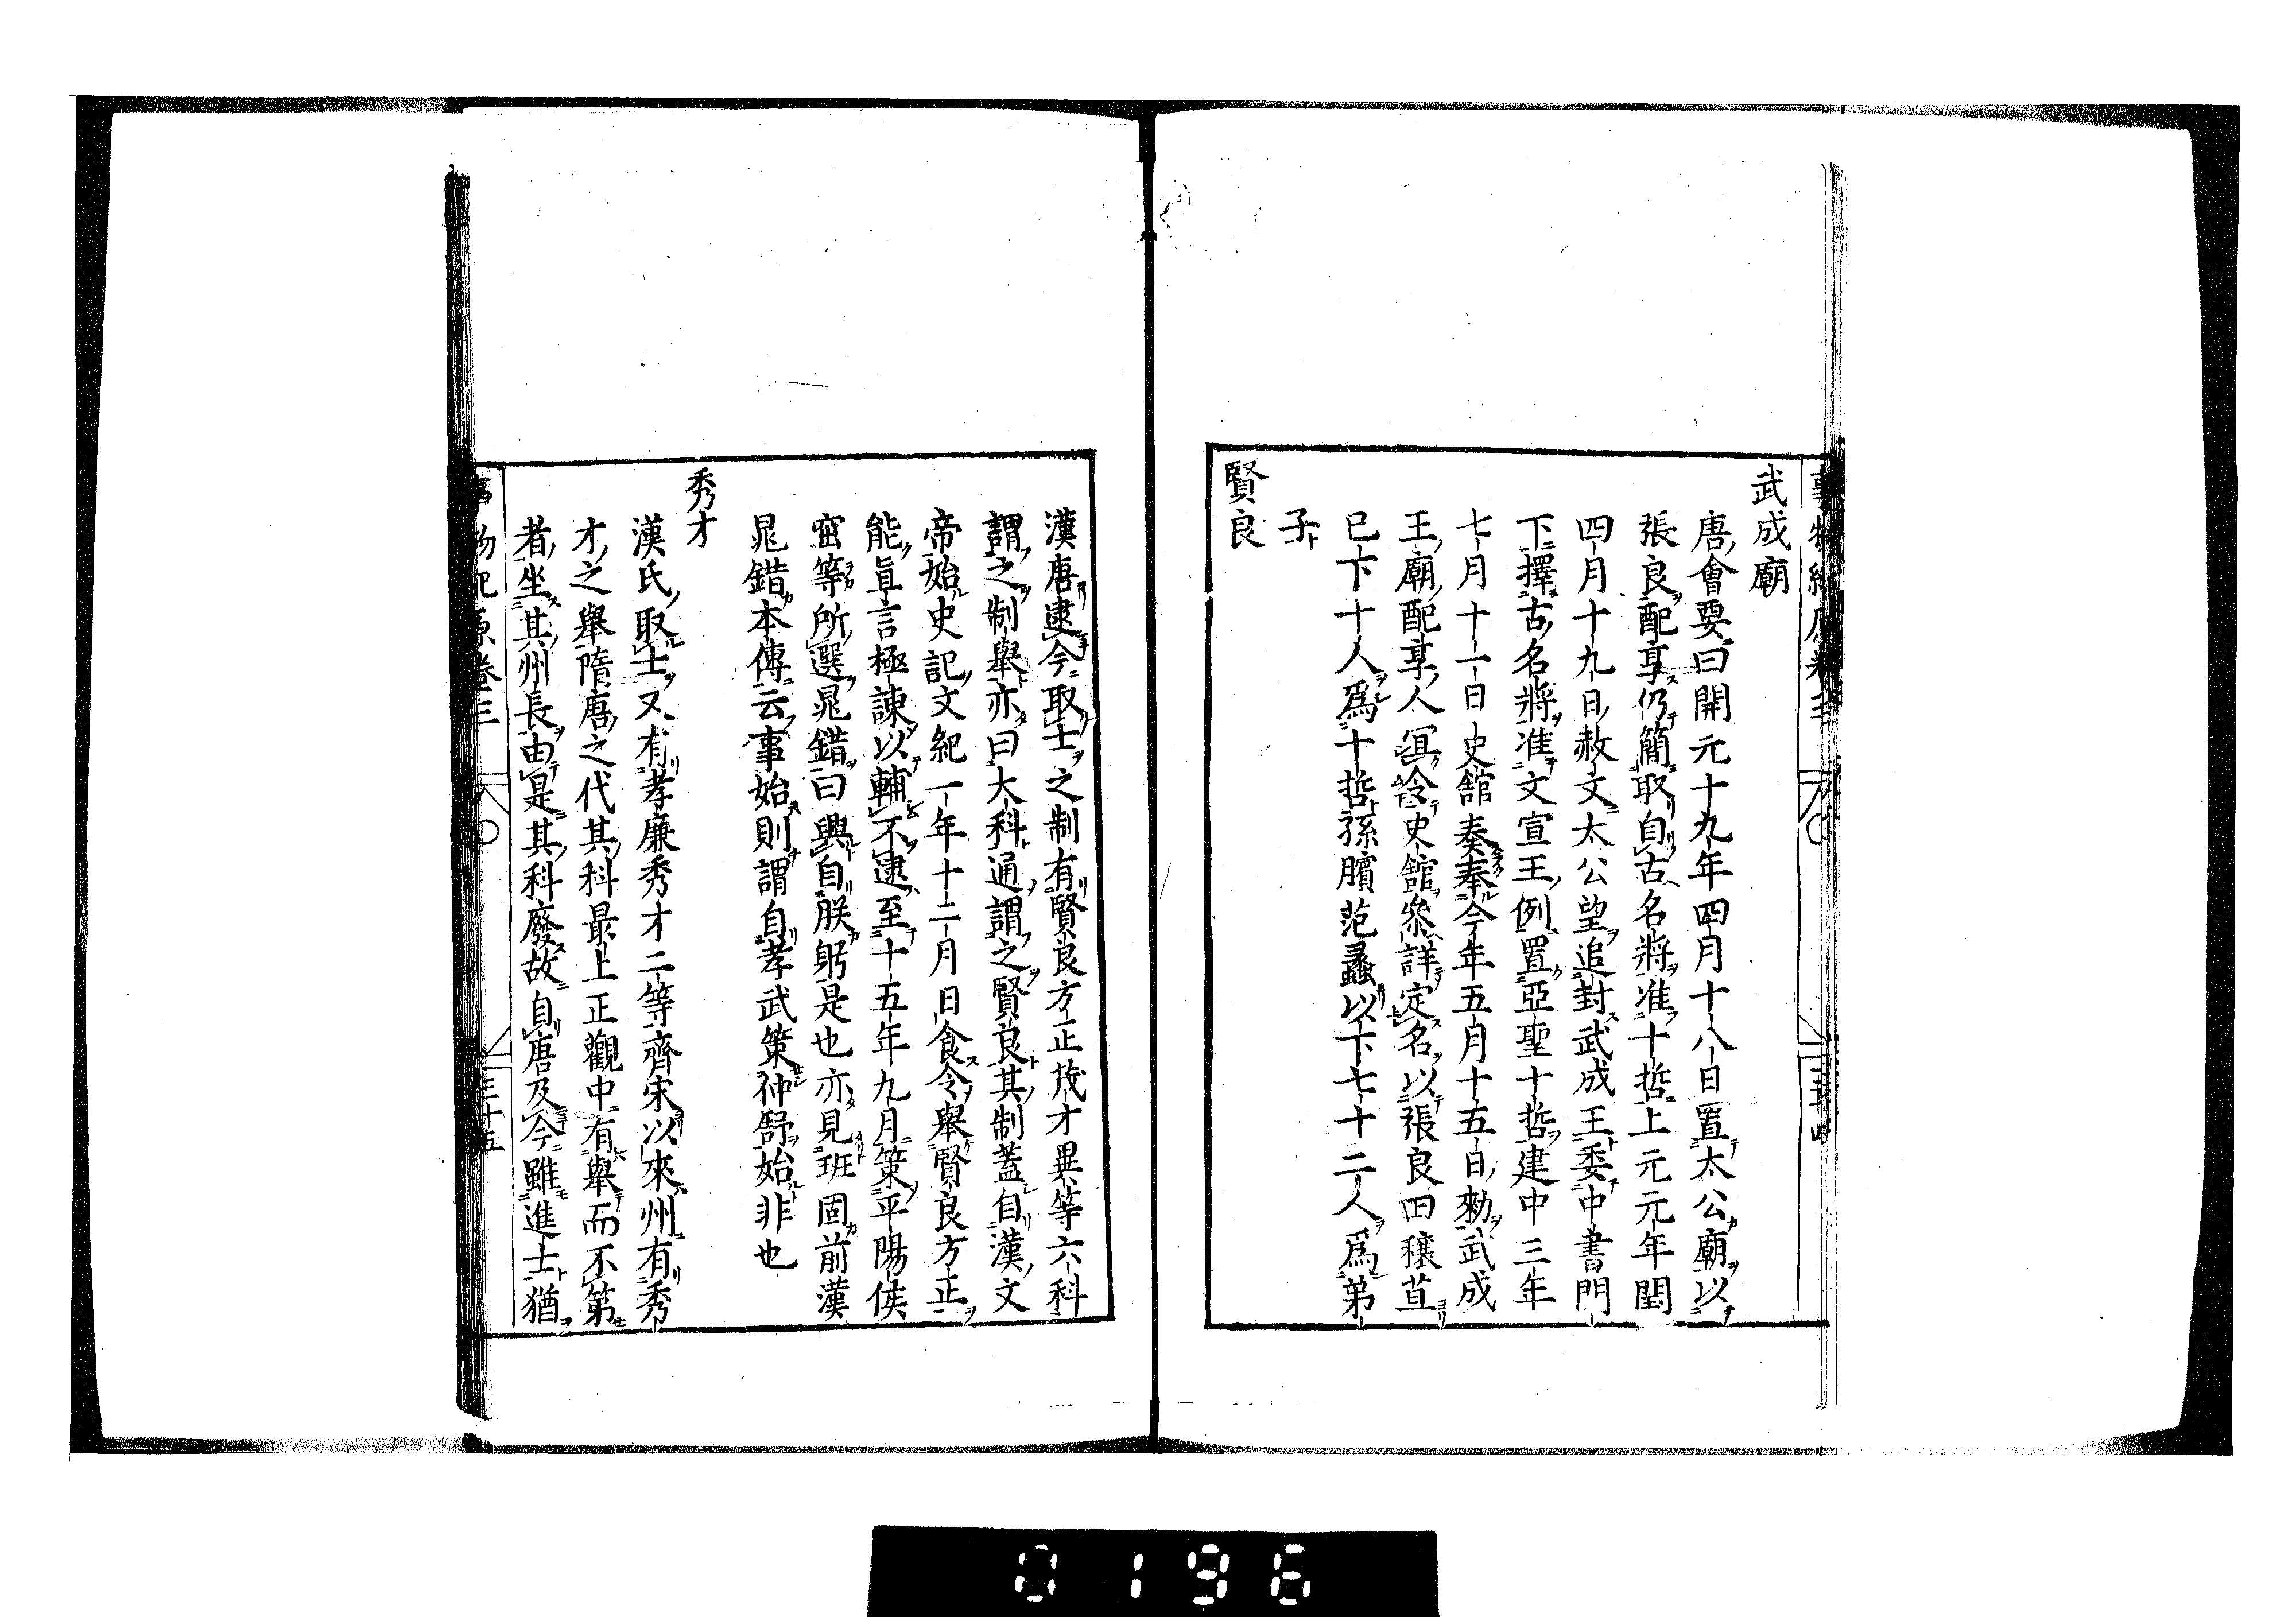 武成廟
唐會要曰開元十九年四月十八日置太公廟以
張良配享仍簡取自古名將准十哲上元元年閏
四月十九日赦文太公望追封武成王委中書門
下擇古名將准文宣王例置亞聖十哲建中三年
七月十一日史舘奏奉今年五月十五日勑武成
王廟配享人冝令史舘叅詳定名以張良田穰苴
已下十人爲十哲孫臏范蠡以下七十二人爲弟
子
賢良
漢唐逮今取士之制有賢良方正茂才異等六科
謂之制舉亦曰大科通謂之賢良其制蓋自漢文
帝始史記文紀一年十二月日食令舉賢良方正
能直言極諫以輔不逮至十五年九月策平陽侯
窋等所選晁錯曰興自朕躬是也亦見班固前漢
晁錯本傳云事始則謂自孝武策仲舒始非也
秀才
漢氏取士又有孝廉秀才二等齊宋以來州有秀
才之舉隋唐之代其科最上正觀中有舉而不第
者坐其州長由是其科廢故自唐及今雖進士猶
事物紀原卷三
三十五
0196